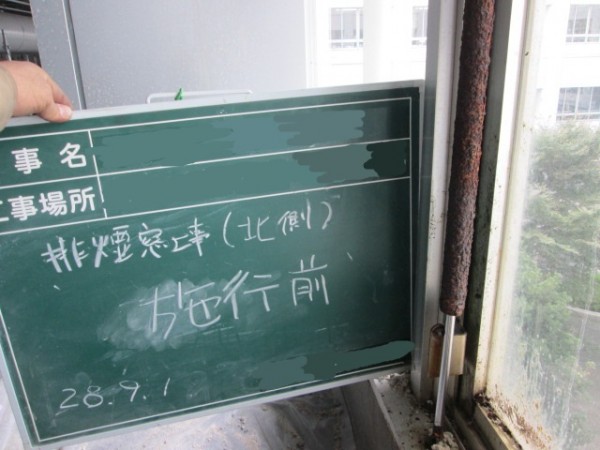 事名
工事場所
排煙窓工事(北側)
施行前
28.9.1